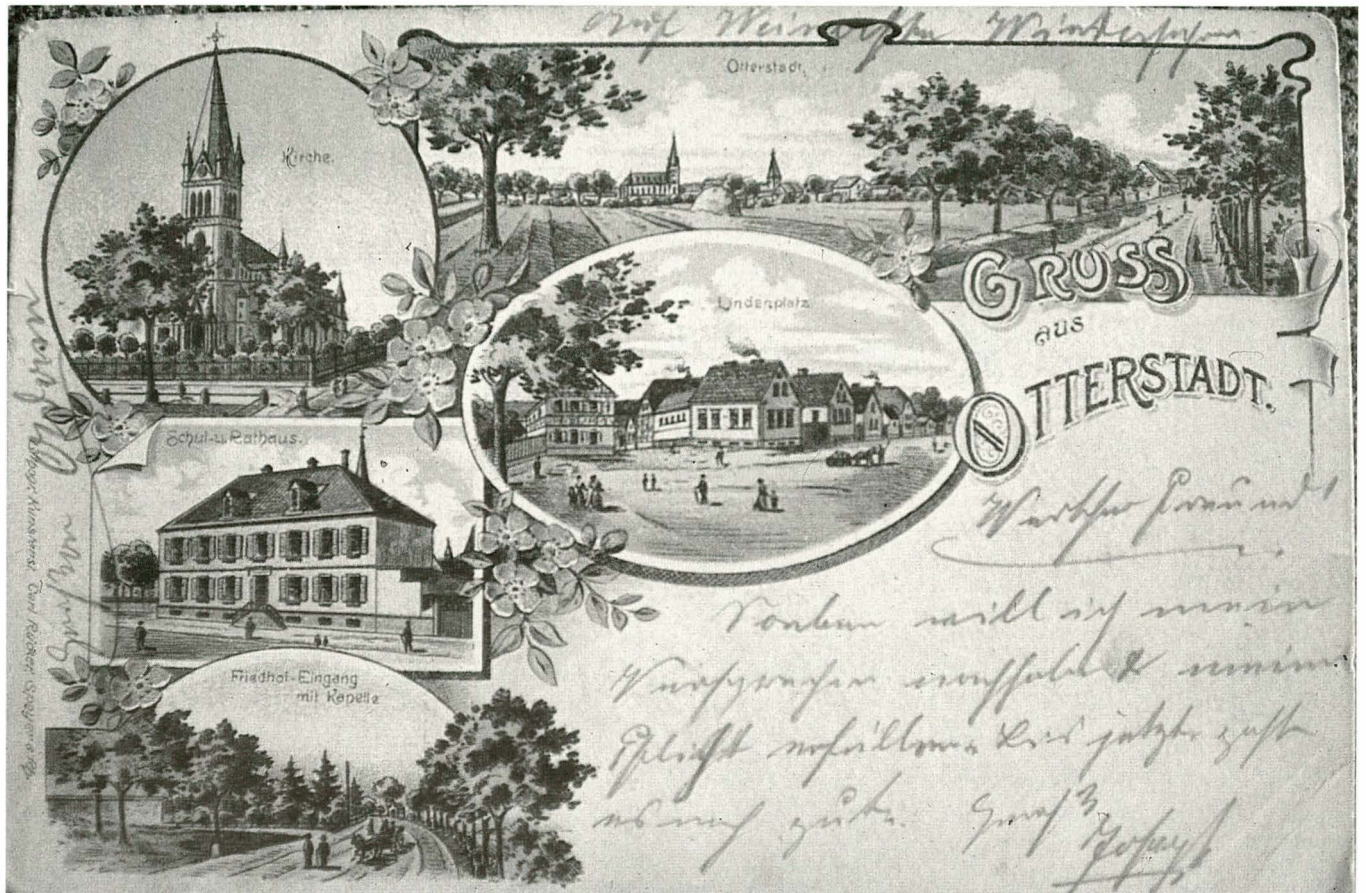 Auf Weinachten Wiedersehen
Otterstadt,
Kirche.
Lindenplatz.
GRUSS
aus
OTTERSTADT.
Schul-u. Rathaus.
Friedhof-Eingang
mit Kapelle
Werther Freund!
Soeben will ich mein
Versprechen nachholen & meine
Pflicht erfüllen. Bis jetzt geht
es noch gut. Gruß
Josef
Carl Rücker, Speyer a. Rh.